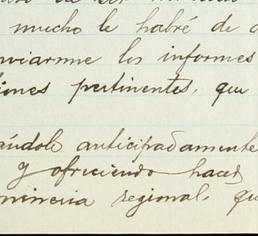 mucho le habré de a
viarme los informes
iones pertinentes, que
ándole anticipadamente
y ofreciendo hacer
minencia regional, qu